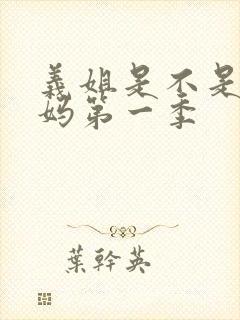 義姐是不是
妈第一季
葉幹英